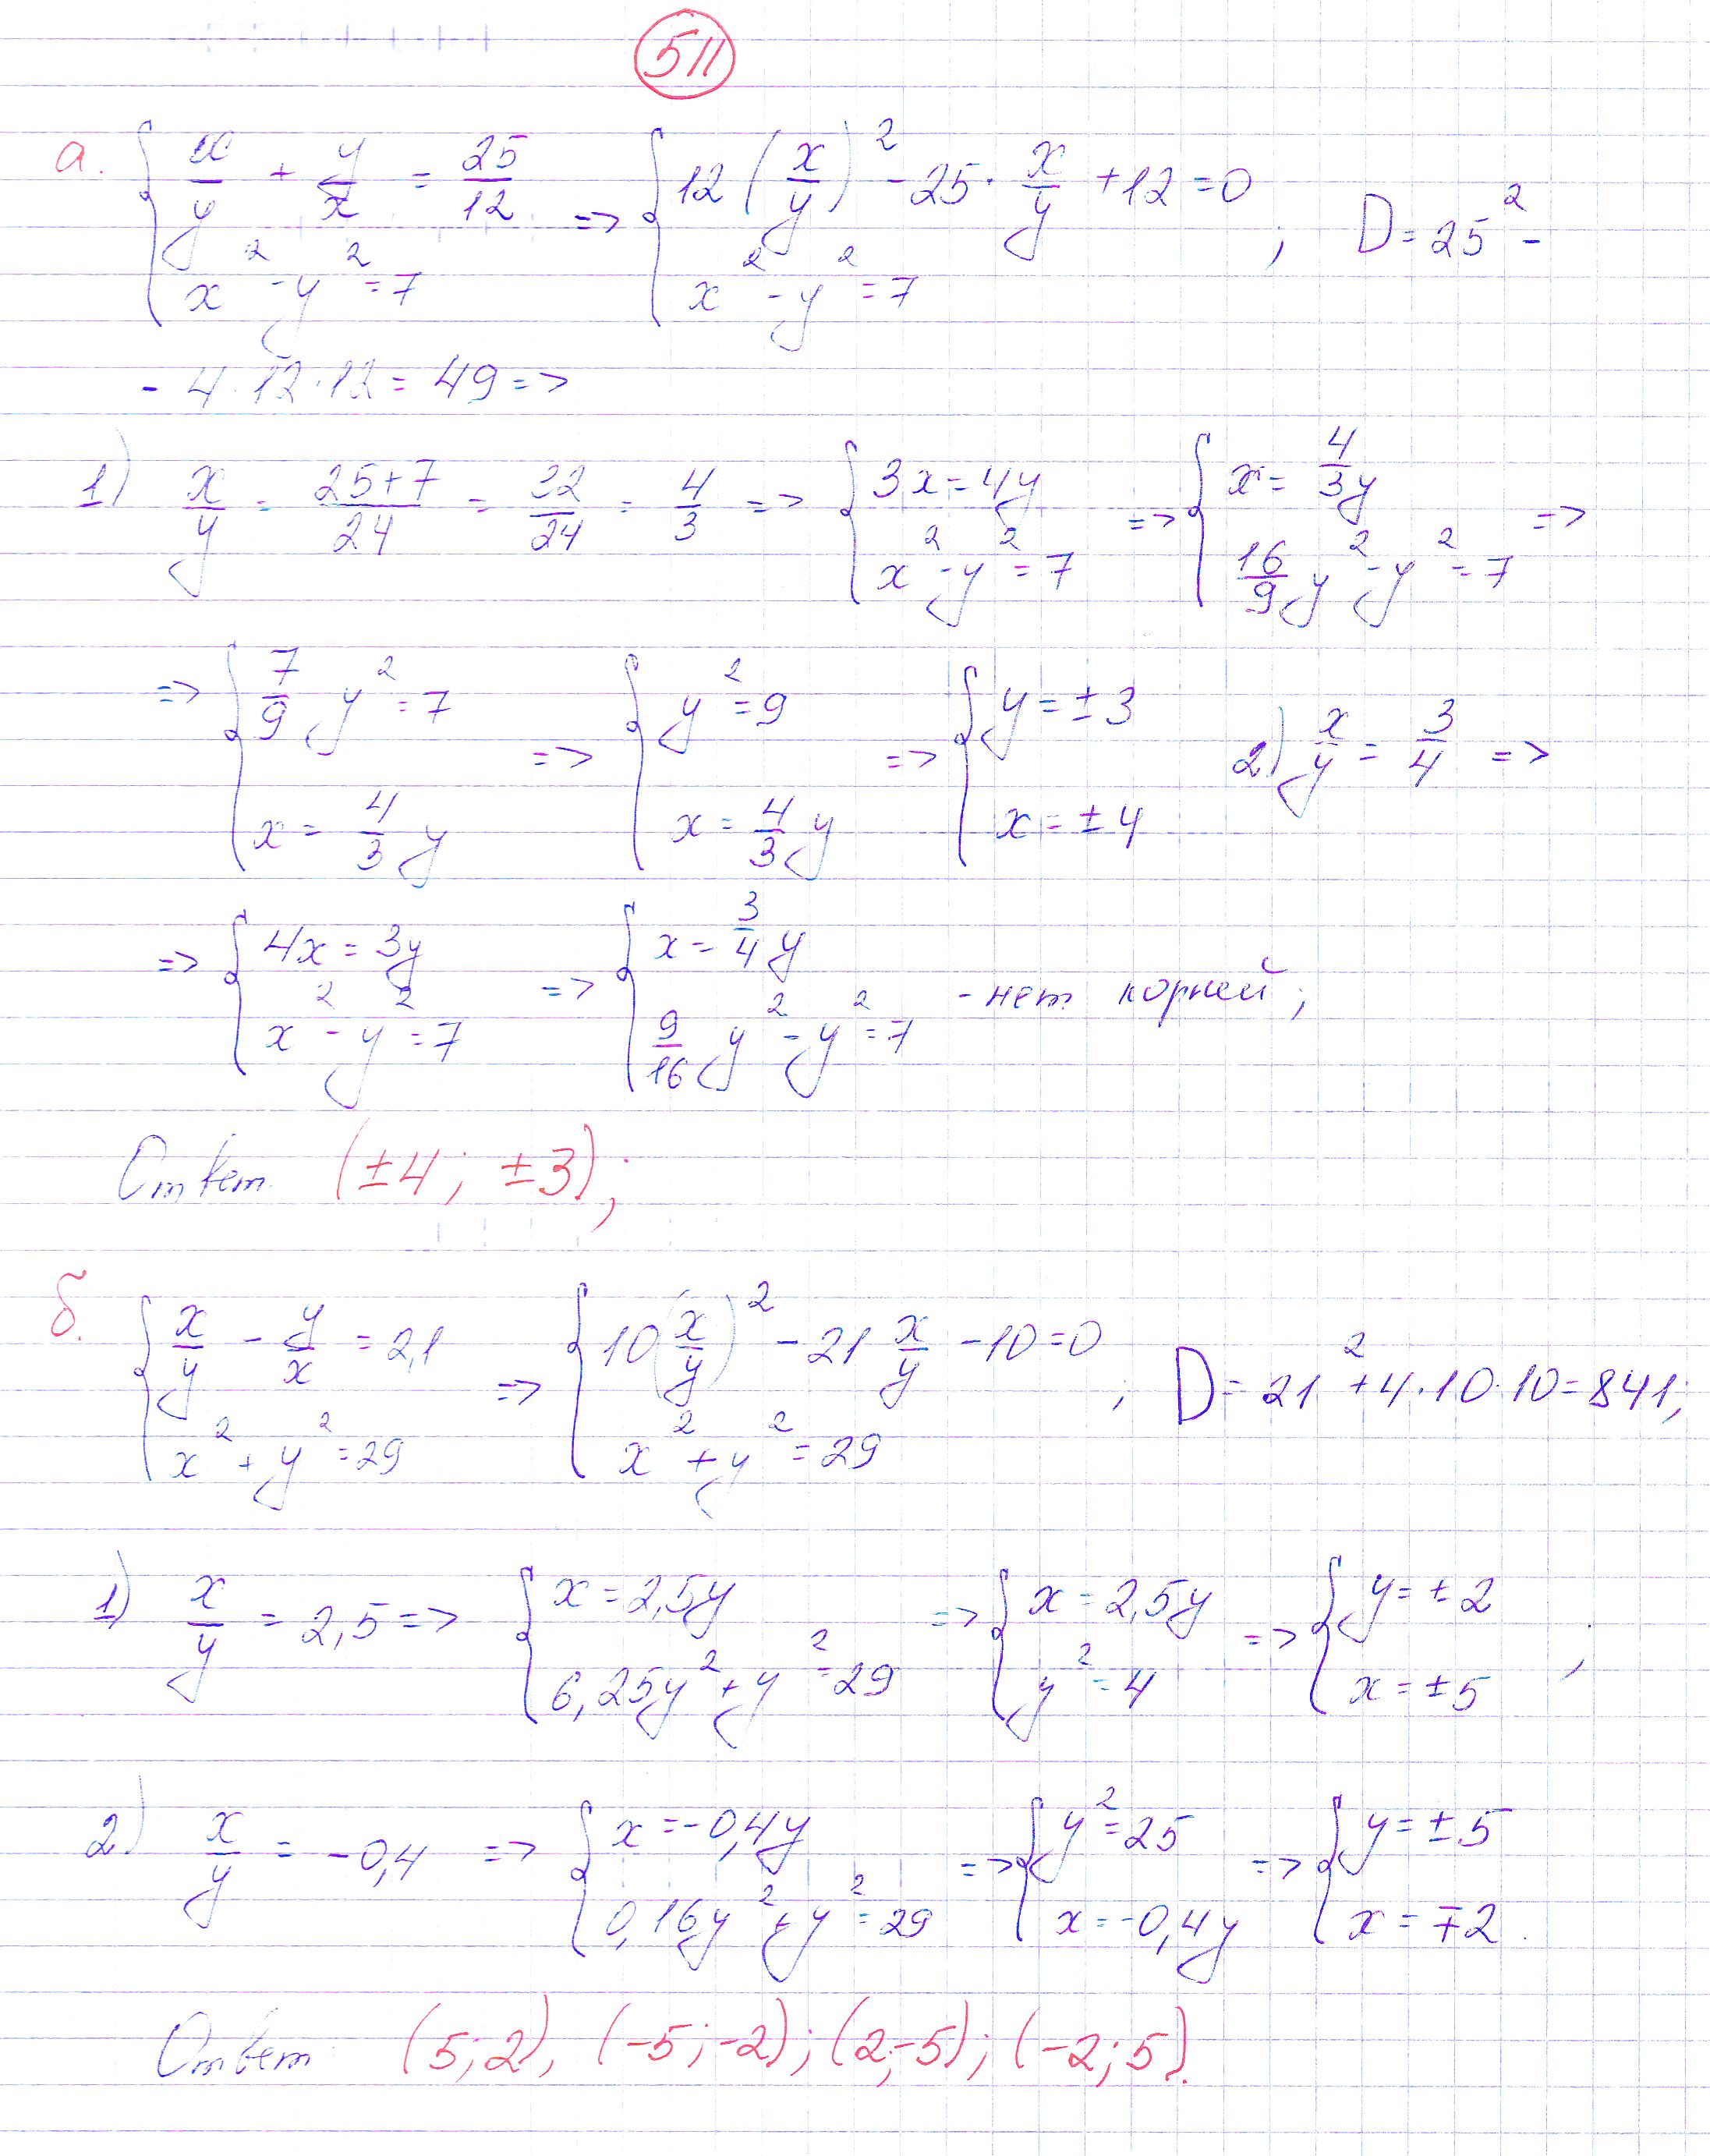 511
а. { x/y + y/x = 25/12 ; x² - y² = 7 => { 12(x/y)² - 25·x/y + 12 = 0 ; x² - y² = 7 ; D = 25² -
- 4·12·12 = 49 =>
1) x/y = (25+7)/24 = 32/24 = 4/3 => { 3x = 4y ; x² - y² = 7 => { x = 4/3 y ; 16/9 y² - y² = 7 =>
=> { 7/9 y² = 7 ; x = 4/3 y => { y² = 9 ; x = 4/3 y => { y = ±3 ; x = ±4 2) x/y = 3/4 =>
=> { 4x = 3y ; x² - y² = 7 => { x = 3/4 y ; 9/16 y² - y² = 7 - нет корней;
Ответ (±4; ±3);
б. { x/y - y/x = 2,1 ; x² + y² = 29 => { 10(x/y)² - 21 x/y - 10 = 0 ; x² + y² = 29 ; D = 21² + 4·10·10 = 841;
1) x/y = 2,5 => { x = 2,5y ; 6,25y² + y² = 29 => { x = 2,5y ; y² = 4 => { y = ±2 ; x = ±5 ;
2) x/y = -0,4 => { x = -0,4y ; 0,16y² + y² = 29 => { y² = 25 ; x = -0,4y => { y = ±5 ; x = ∓2.
Ответ (5;2), (-5;-2); (2;-5); (-2;5).